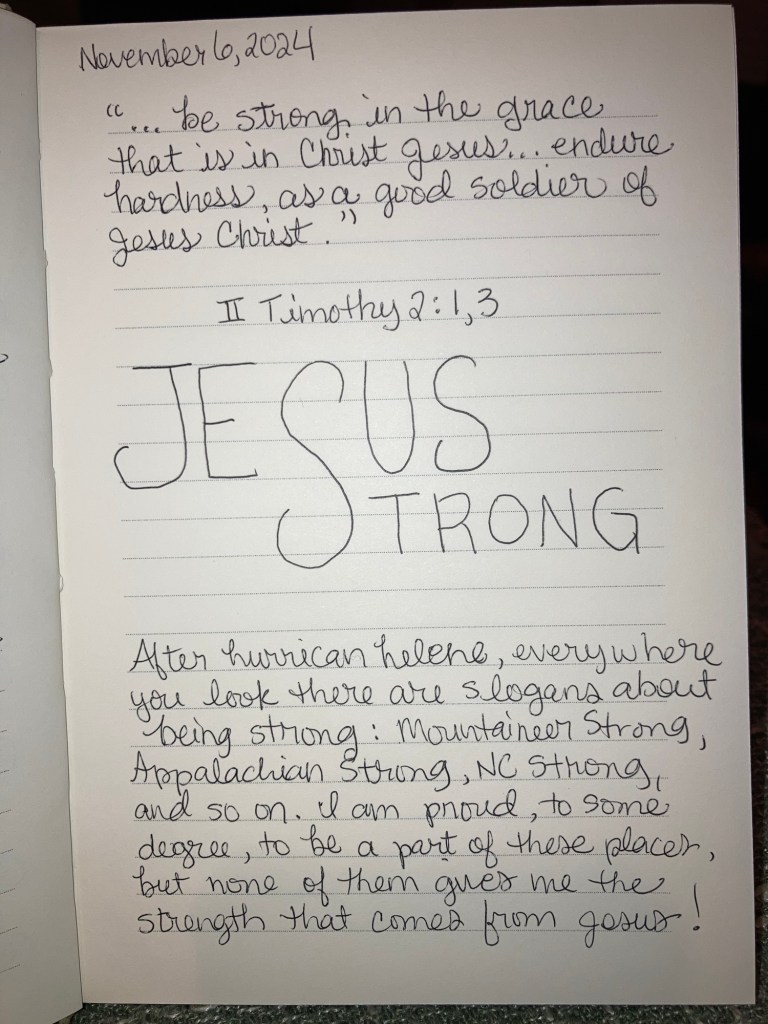 November 6, 2024
"... be strong in the grace
that is in Christ Jesus... endure
hardness, as a good soldier of
Jesus Christ."
II Timothy 2:1,3
JESUS
STRONG
After hurrican helene, everywhere
you look there are slogans about
being strong: Mountaineer Strong,
Appalachian Strong, NC Strong,
and so on. I am proud, to some
degree, to be a part of these places,
but none of them gives me the
strength that comes from Jesus!